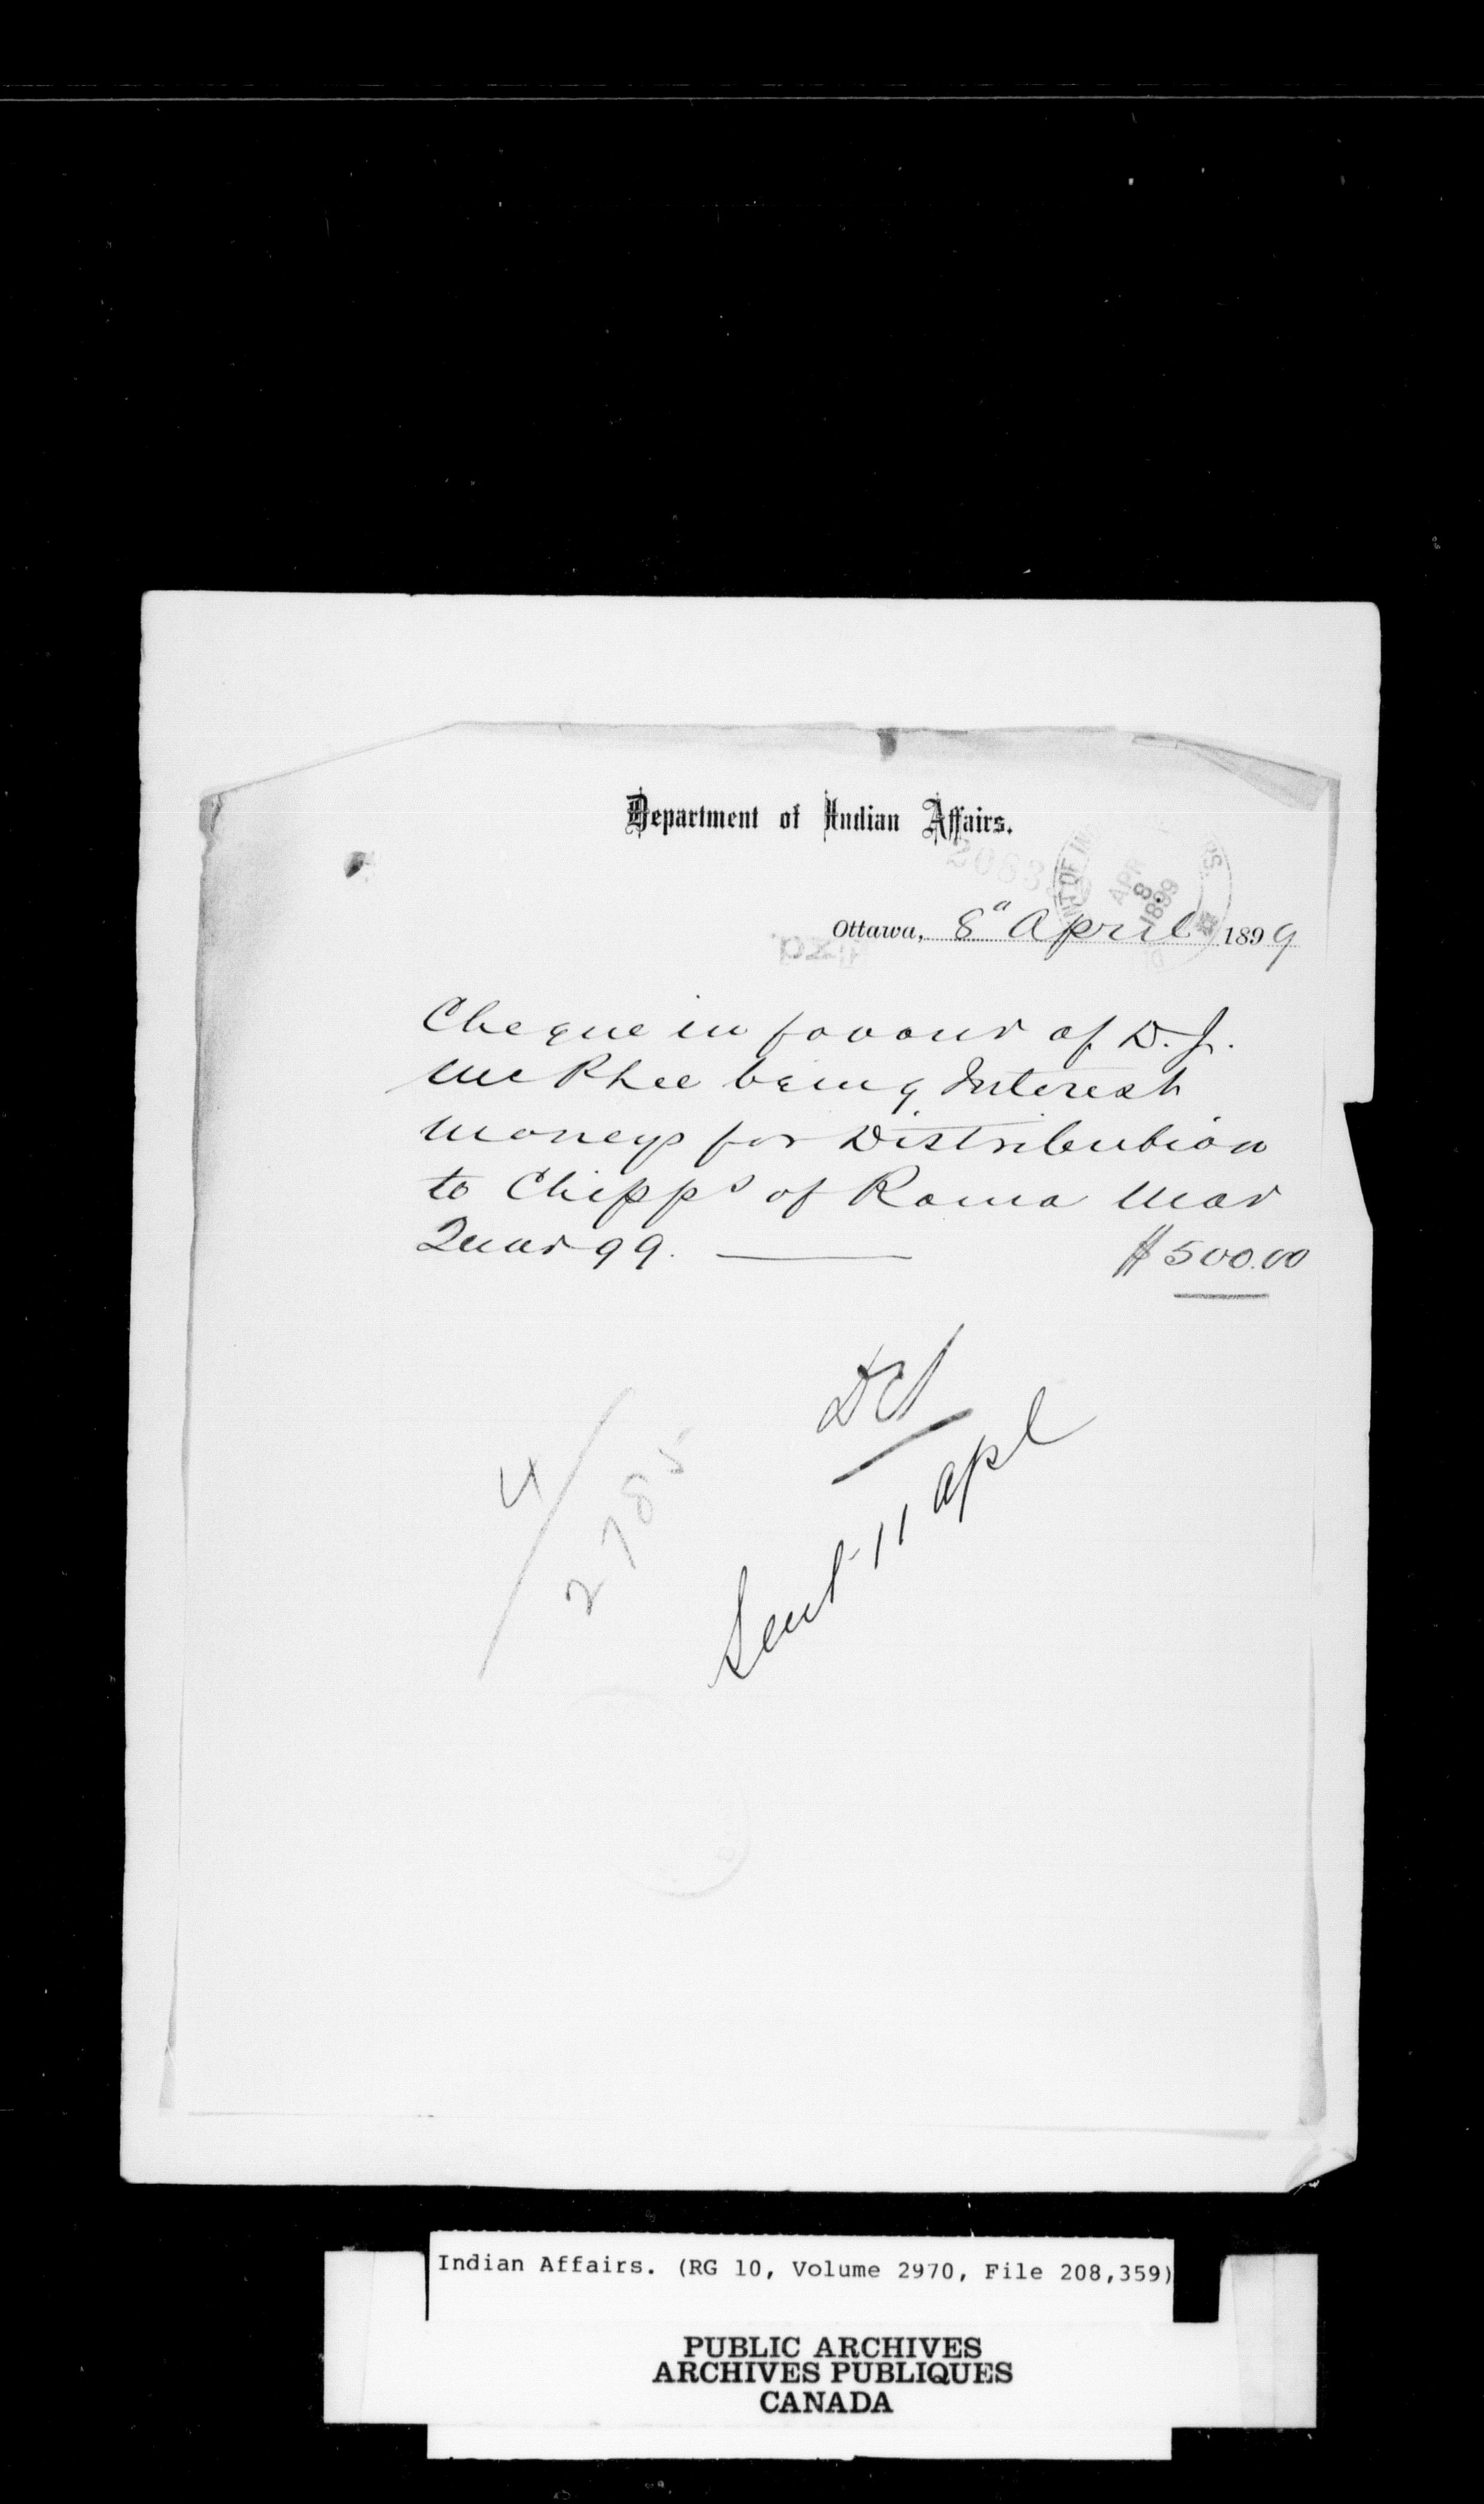 Department of Indian Affairs.
APR 8 1899
Ottawa, 8" April 1899
Cheque in favour of D. J.
McPhee being Interest
moneys for Distribution
to Chipps of Rama Mar
Quar 99. $500.00
Sent 11 Apl
4/2785
Indian Affairs. (RG 10, Volume 2970, File 208,359)
PUBLIC ARCHIVES
ARCHIVES PUBLIQUES
CANADA